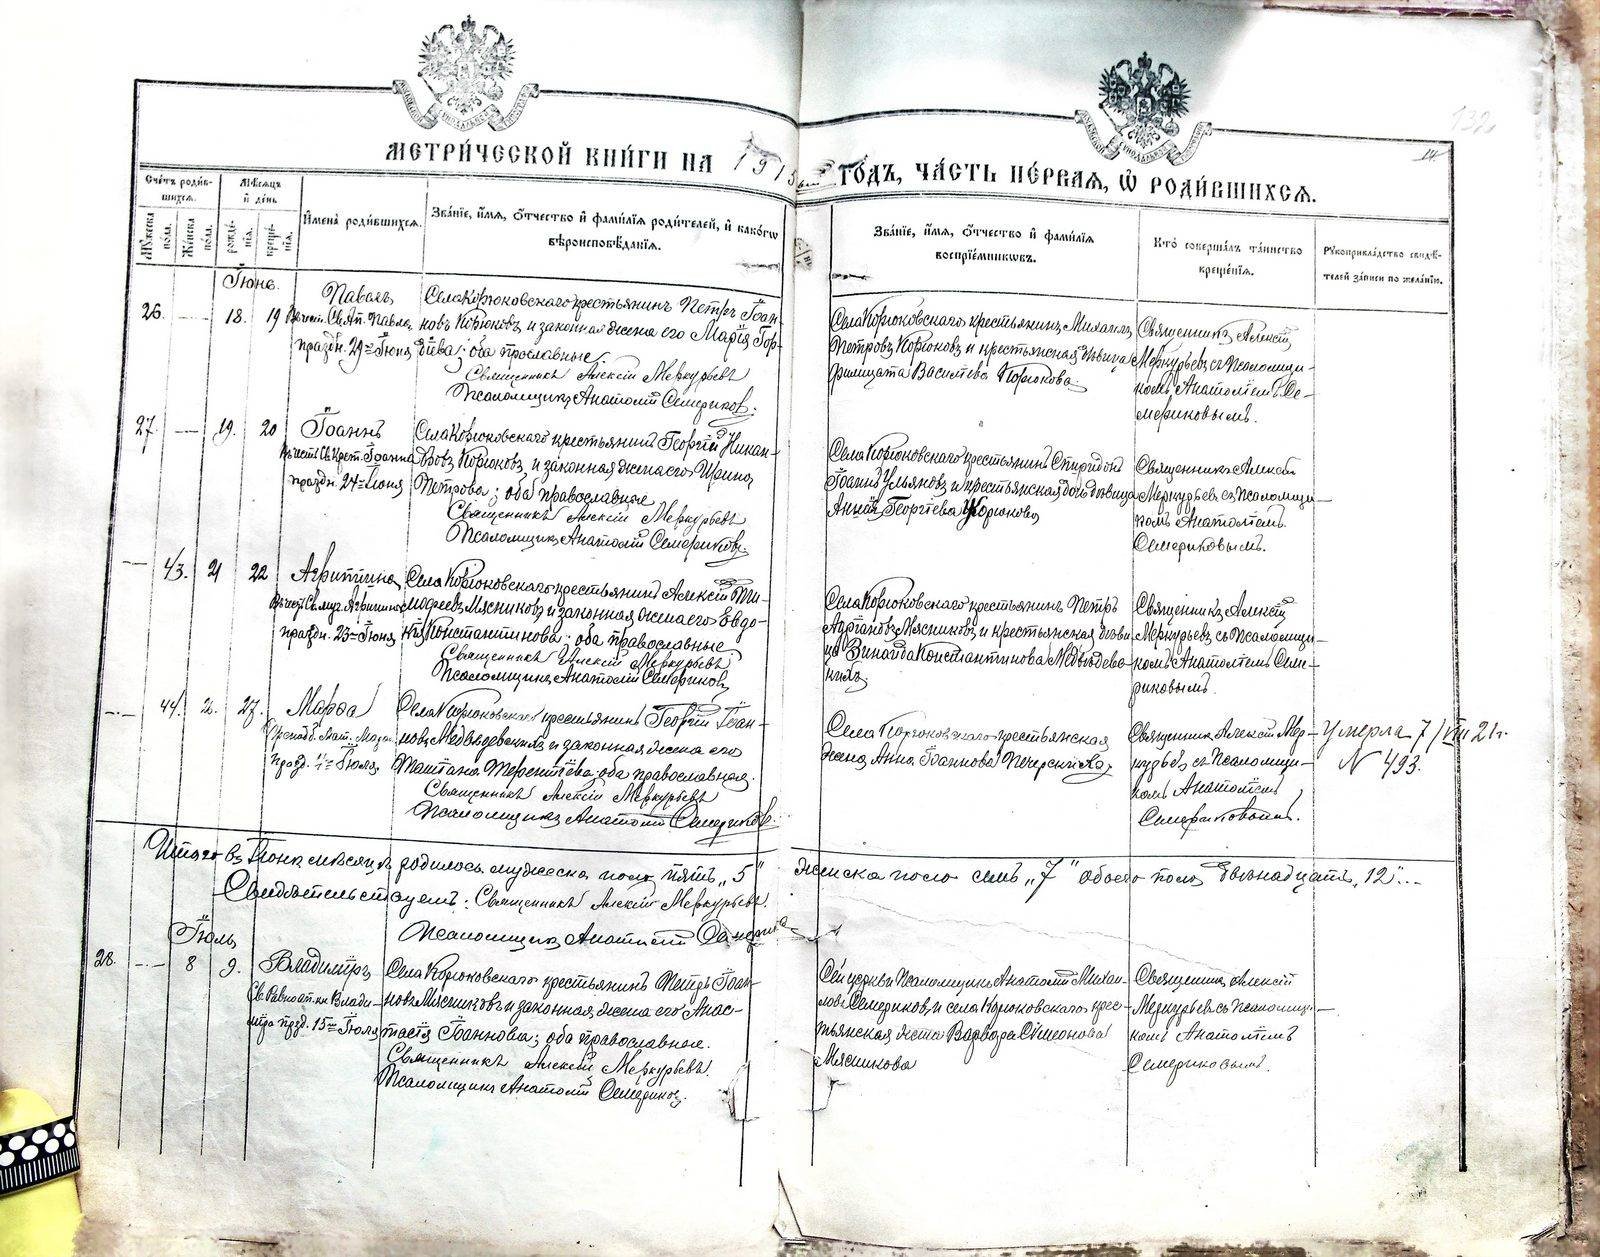 132
14
МЕТРИ́ЧЕСКОЙ КНИ́ГИ НА 1915ый ГО́ДЪ, ЧА́СТЬ ПЕ́РВАЯ, Ѡ РОДИ́ВШИХСЯ.
Сче́тъ роди́вшихся.
Мѣ́сяцъ и҆ де́нь
И҆мена̀ роди́вшихся.
Зва́нїе, и҆́мя, ѻ҆́тчество и҆ фами́лїя роди́телей, и҆ како́гѡ вѣроисповѣ́данїя.
Зва́нїе, и҆́мя, ѻ҆́тчество и҆ фами́лїя воспрїе́мникѡвъ.
Кто̀ соверша́лъ та́инство креще́нїя.
Рꙋкоприкла́дство свидѣ́телей за́писи по жела́нїю.
Мꙋ́жеска по́ла.
Же́нска по́ла.
рожде́нїя.
креще́нїя.
Іюнь.
26. — 18. 19
Павелъ
въ честь Св. Ап. Павла
праздн. 29го Іюня
Села Корюковскаго крестьянинъ Петръ Іоан-
новъ Корюковъ и законная жена его Марія Гор-
дѣева; оба православные.
Священникъ Алексій Меркурьевъ
Псаломщикъ Анатолій Семериковъ.
Села Корюковскаго крестьянинъ Михаилъ
Петровъ Корюковъ и крестьянская дѣвица
Филицата Васильева Корюкова
Священникъ Алексій
Меркурьевъ съ псаломщи-
комъ Анатоліемъ Се-
мериковымъ.
27. — 19. 20
Іоаннъ
въ честь Св. Крест. Іоанна
праздн. 24го Іюня
Села Корюковскаго крестьянинъ Георгій Никан-
ровъ Корюковъ и законная жена его Ирина
Петрова; оба православные
Священникъ Алексій Меркурьевъ
Псаломщикъ Анатолій Семериковъ.
Села Корюковскаго крестьянинъ Спиридонъ
Іоанновъ Ульяновъ и крестьянская дочь дѣвица
Анна Георгіева Корюкова
Священникъ Алексій
Меркурьевъ съ псаломщи-
комъ Анатоліемъ
Семериковымъ.
— 43. 21 22
Агриппина
въ честь Св. муч. Агриппины
праздн. 23го Іюня
Села Корюковскаго крестьянинъ Алексій Ти-
мофеевъ Мясниковъ и законная жена его Евдо-
кія Константинова; оба православные.
Священникъ Алексій Меркурьевъ
Псаломщикъ Анатолій Семериковъ
Села Корюковскаго крестьянинъ Петръ
Мясниковъ и крестьянская дѣви-
ца Зинаида Константинова Медвѣдев-
Священникъ Алексій
Меркурьевъ съ псаломщи-
комъ Анатоліемъ Семе-
риковымъ.
— 44. 2. 27.
Марѳа
Препод. Мат.
празд. Іюля
Села Корюковскаго крестьянинъ Георгій Іоан-
новъ Медвѣдевскихъ и законная жена его
Татіана Терентіева; оба православная.
Священникъ Алексій Меркурьевъ
Псаломщикъ Анатолій Семериковъ.
Села Корюковскаго крестьянская
жена Анна Іоаннова Печерская
Священникъ Алексій Мер-
курьевъ съ псаломщи-
комъ Анатоліемъ
Семериковымъ.
Умерла 7/VIII 21г.
N 493.
Итого въ Іюнѣ мѣсяцѣ родилось мужеска пола пять „5“ женска пола семь „7“ обоего пола двѣнадцать „12“.
Свидѣтельствуемъ: Священникъ Алексій Меркурьевъ.
Псаломщикъ Анатолій Семериковъ
Іюль
28. — 8 9.
Владиміръ
Св. Равноап. кн. Влади-
міра празд. 15го Іюля
Села Корюковскаго крестьянинъ Петръ Іоан-
новъ Мясниковъ и законная жена его Анас-
тасія Іоаннова; оба православные.
Священникъ Алексій Меркурьевъ.
Псаломщикъ Анатолій Семериковъ.
Сей церкви Псаломщикъ Анатолій Михаи-
ловъ Семериковъ и села Корюковскаго крес-
тьянская жена Варвара Симеонова
Мясникова
Священникъ Алексій
Меркурьевъ съ псаломщи-
комъ Анатоліемъ
Семериковымъ.